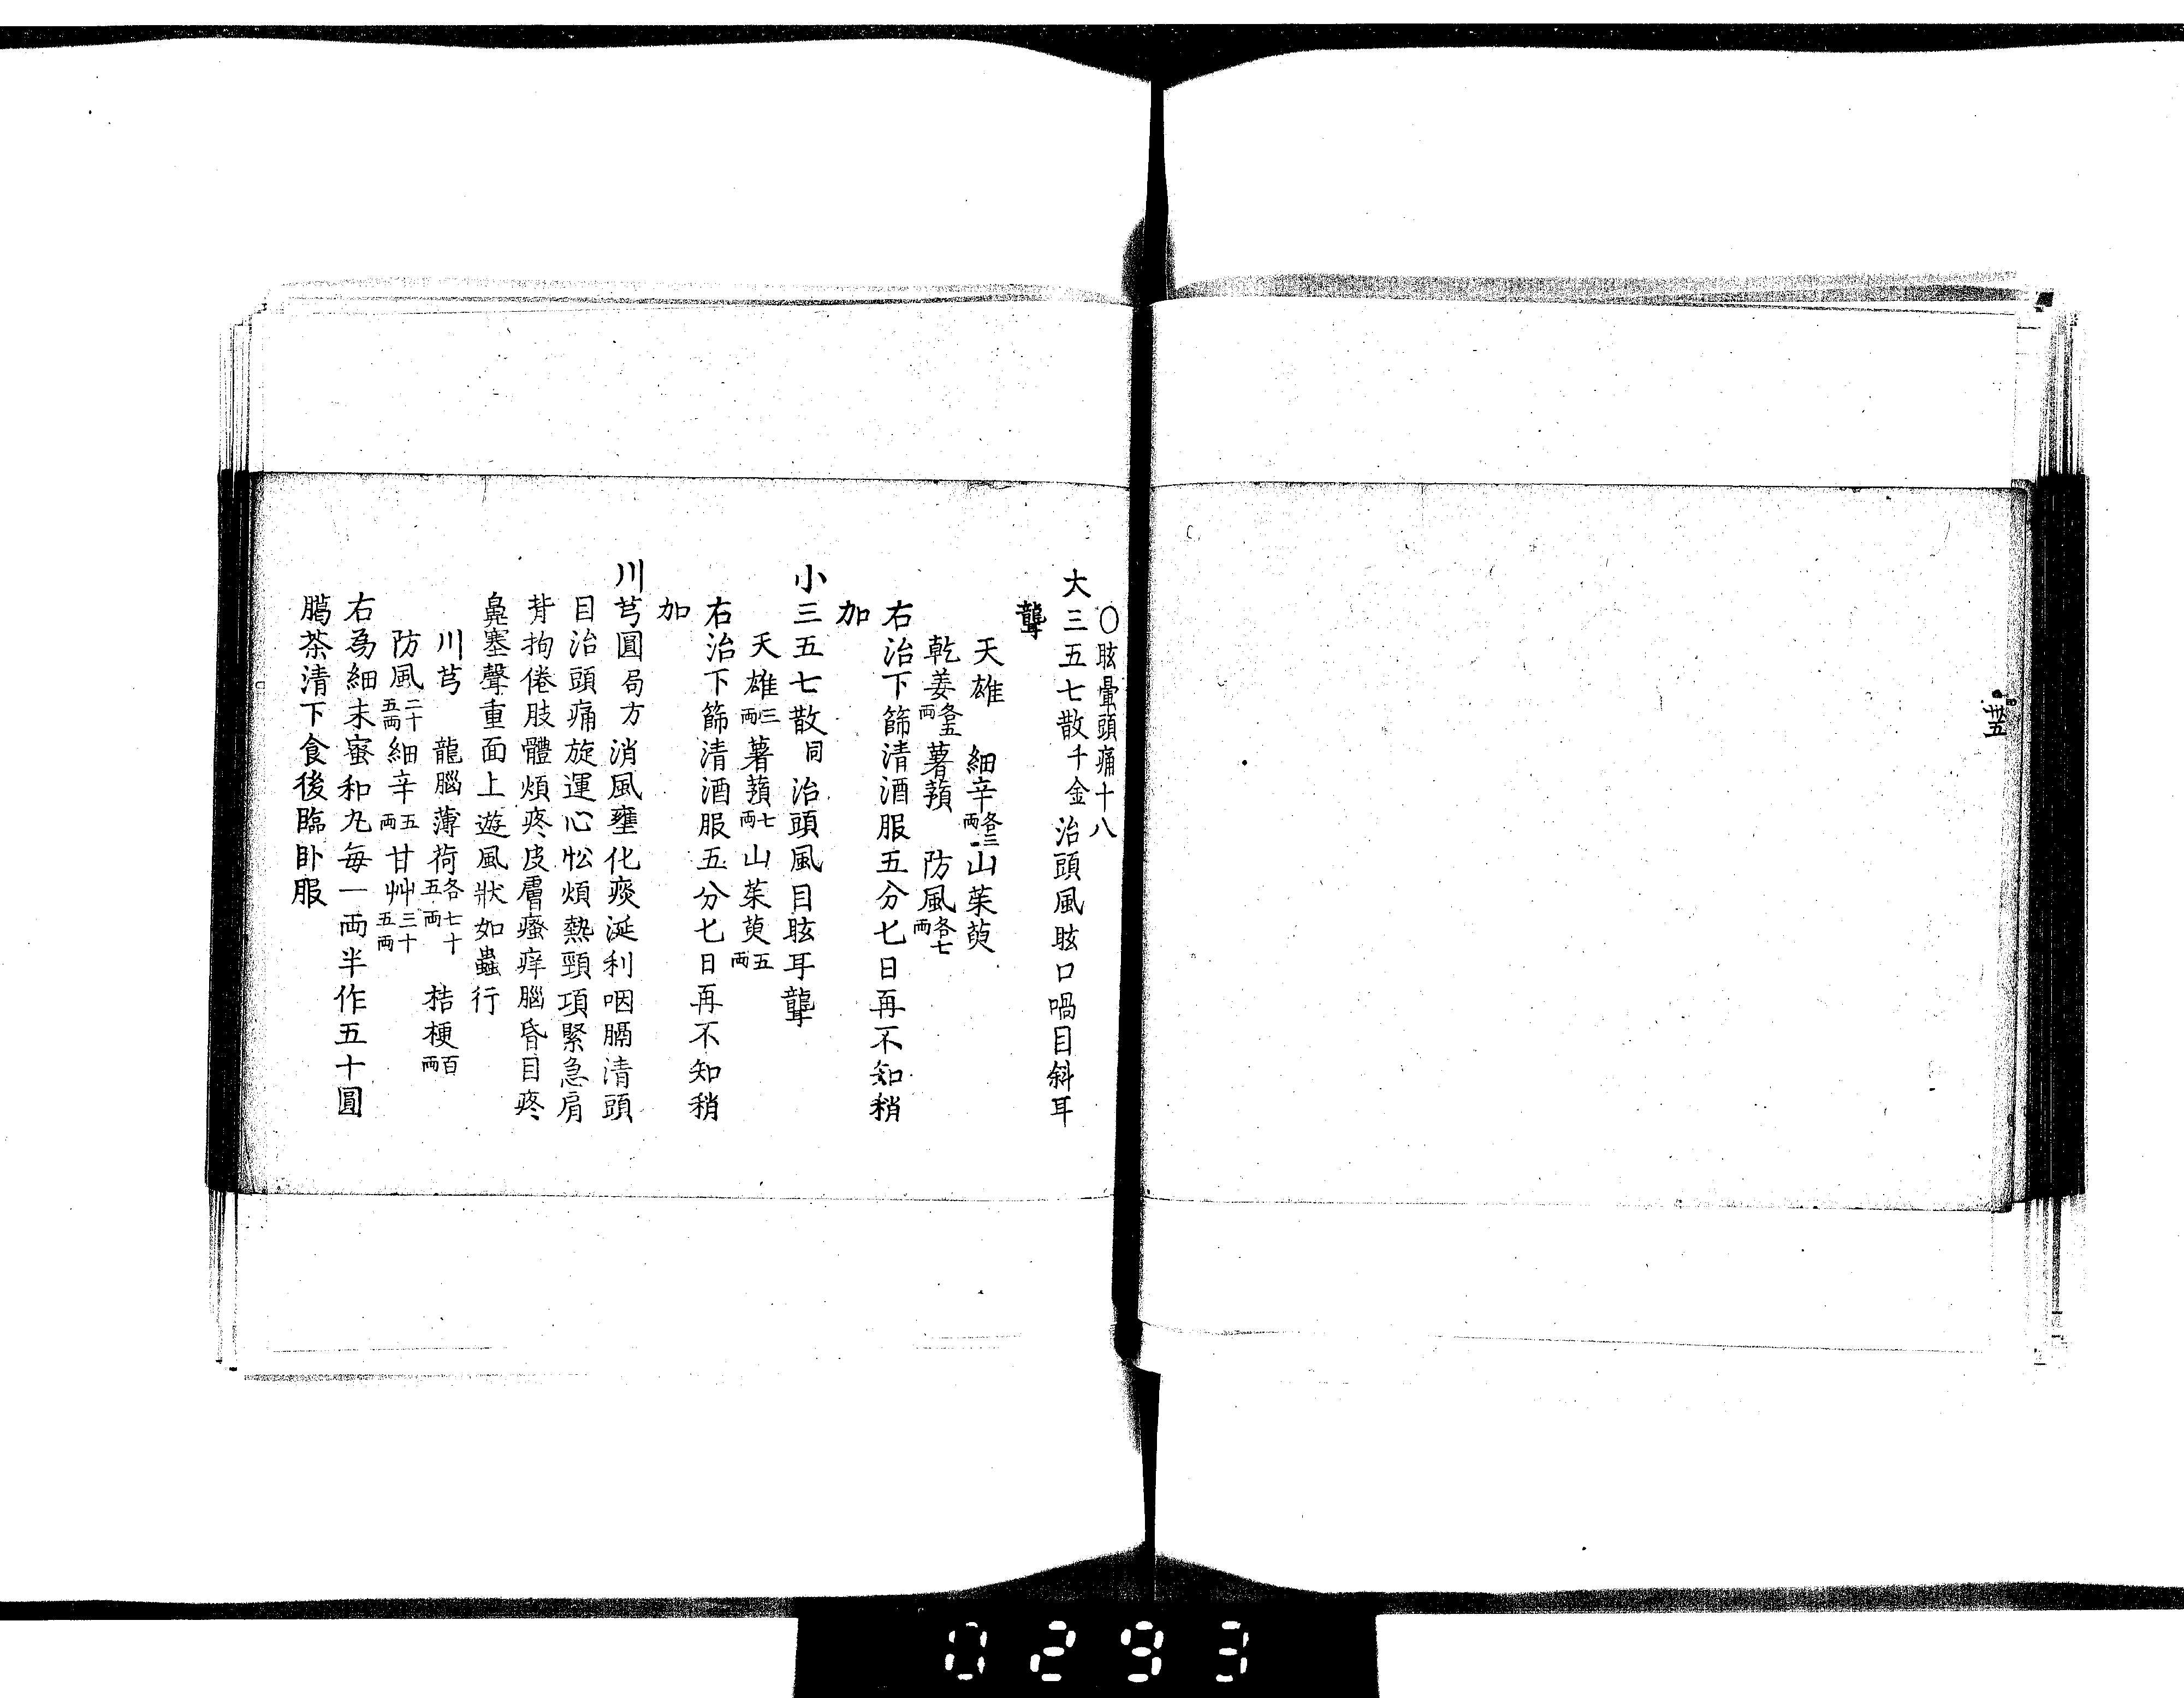 五
〇眩暈頭痛十八
大三五七散千金治頭風眩口喎目斜耳
聾
天雄 細辛各三両山茱萸
乾姜各五両薯蕷 防風各七両
右治下篩清酒服五分匕日再不知稍
加
小三五七散同治頭風目眩耳聾
天雄三両薯蕷七両山茱萸五両
右治下篩清酒服五分匕日再不知稍
加
川芎圓局方消風壅化痰涎利咽膈清頭
目治頭痛旋運心忪煩熱頸項緊急肩
背拘倦肢體煩疼皮膚瘙痒腦昏目疼
鼻塞聲重面上遊風狀如蟲行
川芎 龍腦薄荷各七十五両 桔梗百両
防風二十五両細辛五両甘艸三十五両
右為細末蜜和丸每一両半作五十圓
臈茶清下食後臨卧服
0293